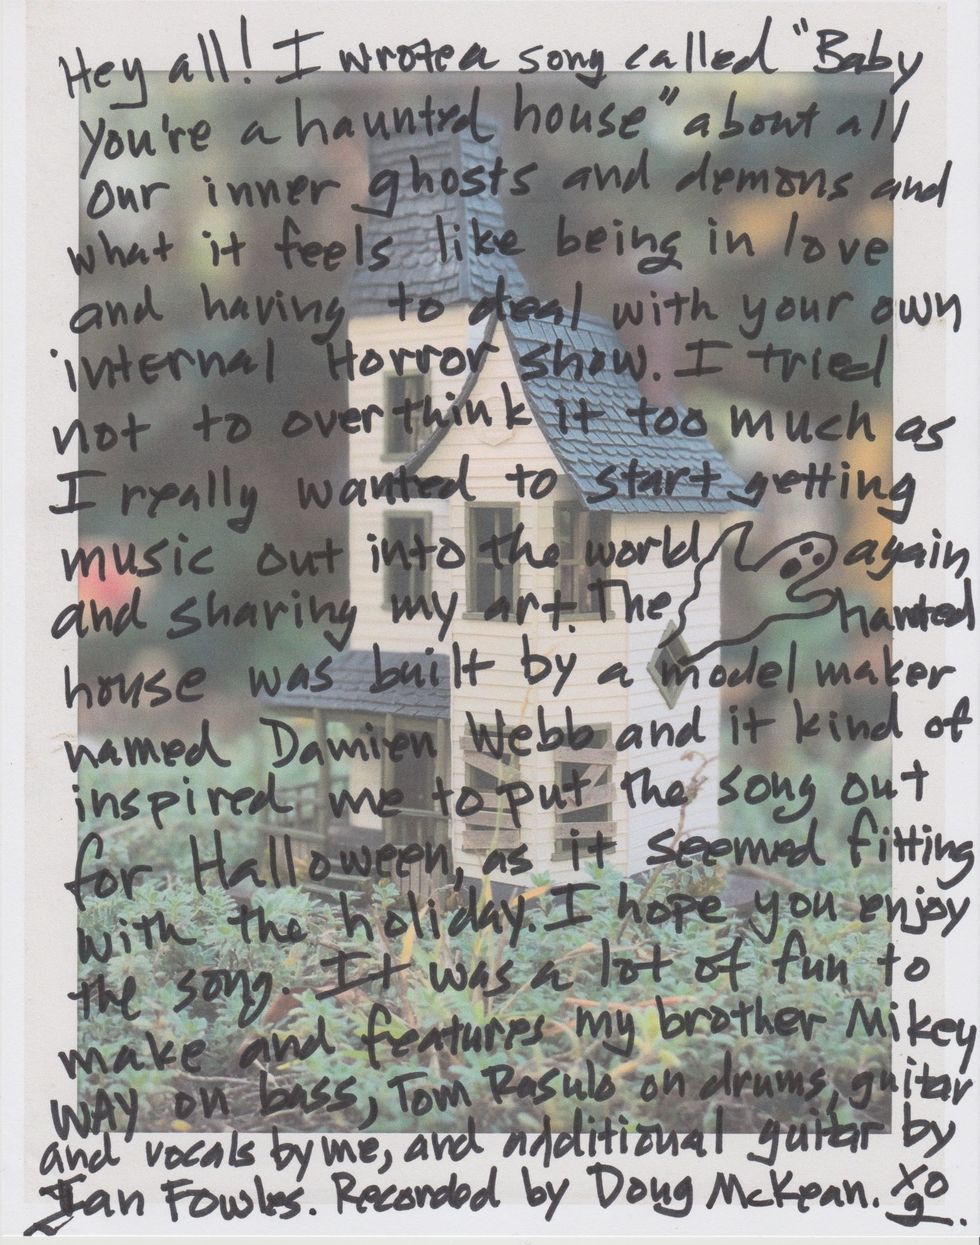 Hey all! I wrote a song called "Baby
You're a haunted house" about all
our inner ghosts and demons and
what it feels like being in love
and having to deal with your own
internal Horror show. I tried
not to over think it too much as
I really wanted to start getting
music out into the world again
and sharing my art. The hanted
house was built by a model maker
named Damien Webb and it kind of
inspired me to put the song out
for Halloween, as it seemed fitting
with the holiday. I hope you enjoy
the song. It was a lot of fun to
make and features my brother Mikey
WAY on bass, Tom Rasulo on drums, guitar
and vocals by me, and additional guitar by
Ian Fowles. Recorded by Doug McKean. xo
g.